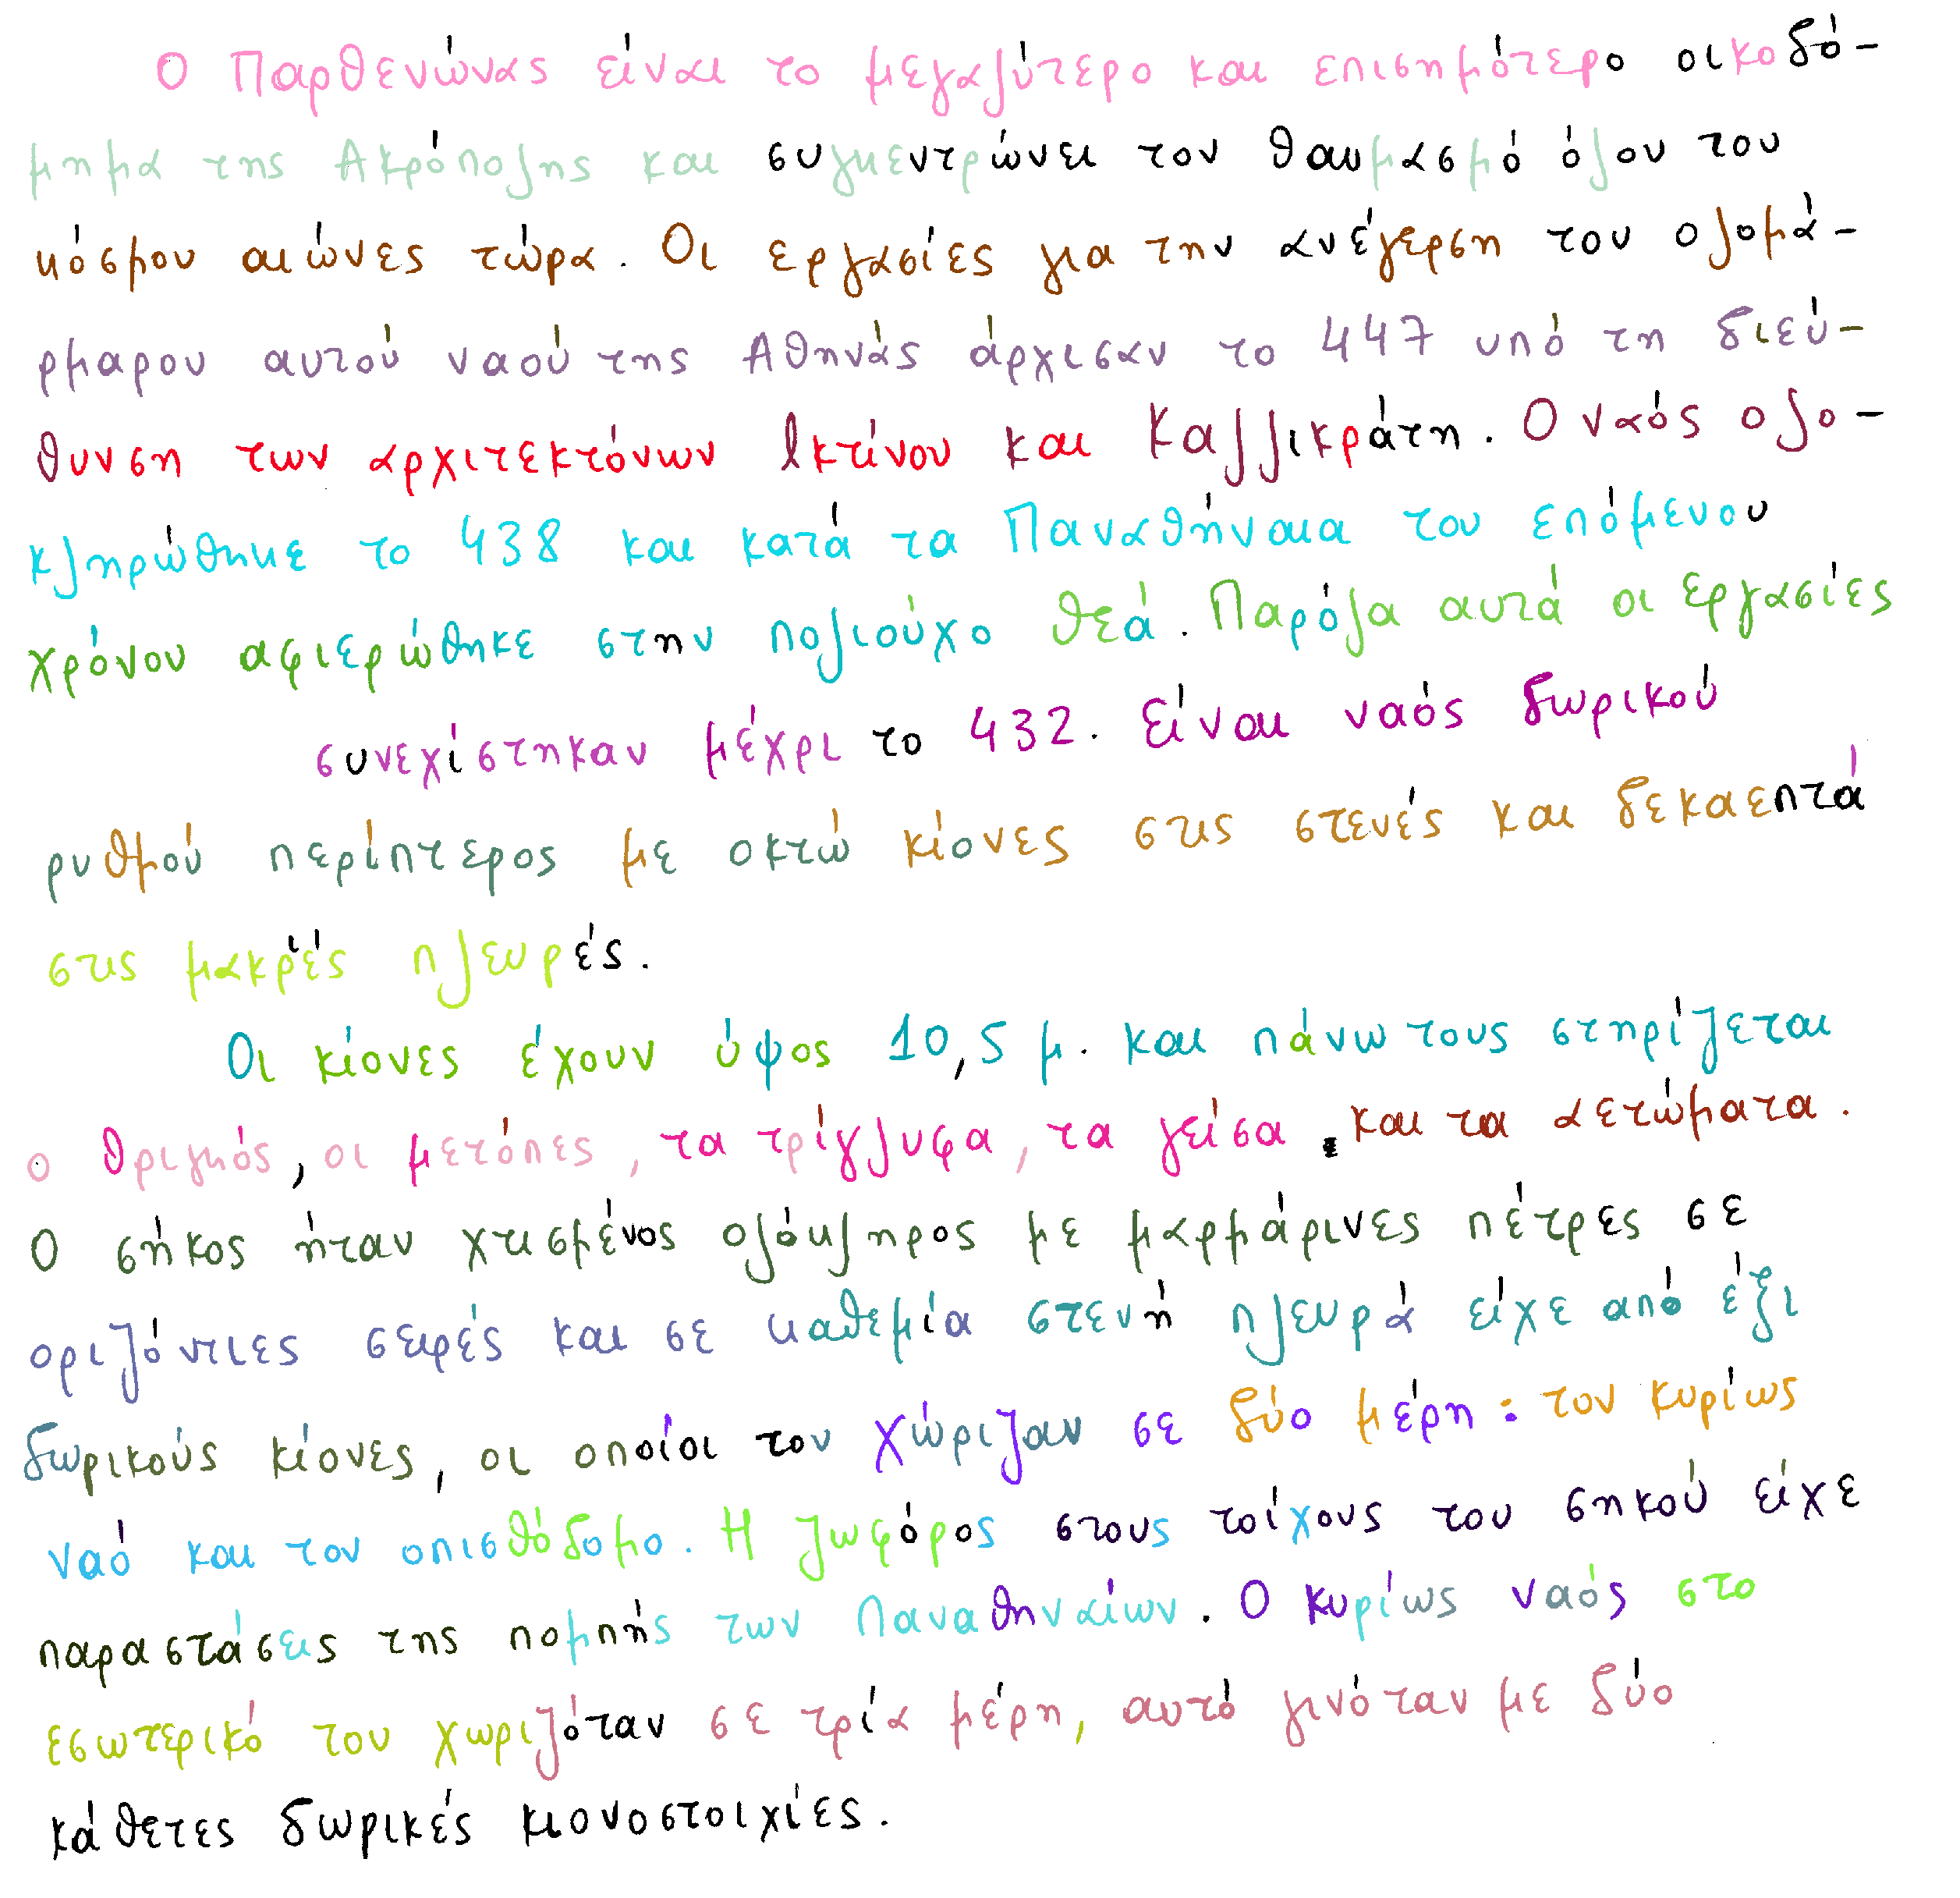 Ο Παρθενώνας είναι το μεγαλύτερο και επισημότερο οικοδό-
μημα της Ακρόπολης και συγκεντρώνει τον θαυμασμό όλου του
κόσμου αιώνες τώρα. Οι εργασίες για την ανέγερση του ολομά-
ρμαρου αυτού ναού της Αθηνάς άρχισαν το 447 υπό τη διεύ-
θυνση των αρχιτεκτόνων Ικτίνου και Καλλικράτη. Ο ναός ολο-
κληρώθηκε το 438 και κατά τα Παναθήναια του επόμενου
χρόνου αφιερώθηκε στην πολιούχο θεά. Παρόλα αυτά οι εργασίες
συνεχίστηκαν μέχρι το 432. Είναι ναός δωρικού
ρυθμού περίπτερος με οκτώ κίονες στις στενές και δεκαεπτά
στις μακρές πλευρές.
Οι κίονες έχουν ύψος 10,5 μ. και πάνω τους στηρίζεται
ο θριγκός, οι μετόπες, τα τρίγλυφα, τα γείσα. και τα αετώματα.
Ο σηκος ήταν χτισμένος ολόκληρος με μαρμάρινες πέτρες σε
οριζόντιες σειρές και σε καθεμία στενή πλευρά είχε από έξι
δωρικούς κίονες, οι οποίοι τον χώριζαν σε δύο μέρη: τον κυρίως
ναό και τον οπισθόδομο. Η ζωφόρος στους τοίχους του σηκού είχε
παραστάσεις της πομπής των Παναθηναίων. Ο κυρίως ναός στο
εσωτερικό του χωριζόταν σε τρία μέρη, αυτό γινόταν με δύο
κάθετες δωρικές κιονοστοιχίες.